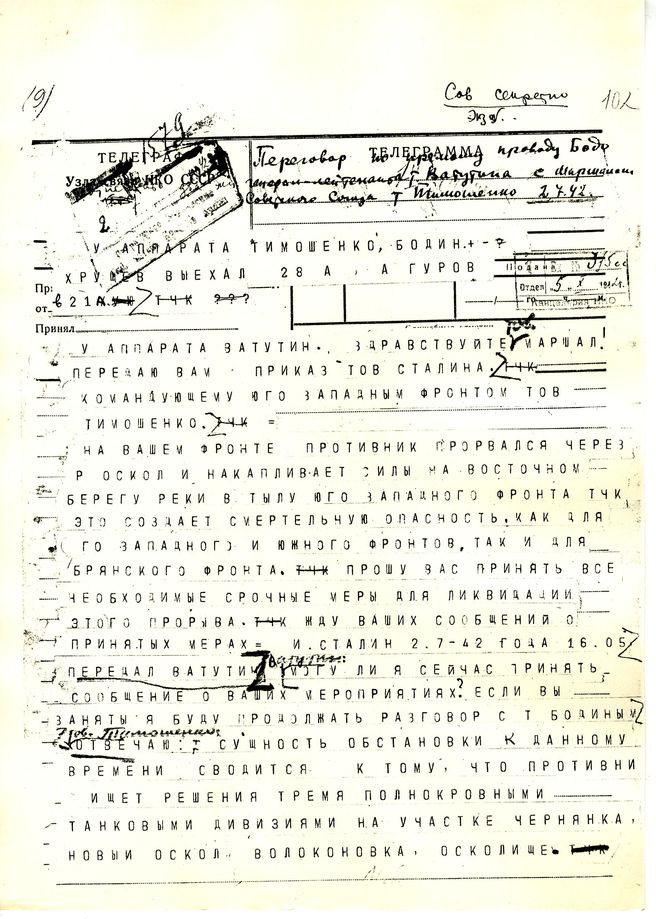 (9)
Сов секретно
экз.
102
579
ТЕЛЕГРАФ
ТЕЛЕГРАММА
Узел связи НКО СССР
Переговор по прямому проводу Бодо
генерал-лейтенанта т Ватутина с Маршалом
Советского Союза т Тимошенко 2.7.42
2
У АППАРАТА ТИМОШЕНКО, БОДИН.+-7
ХРУЩЕВ ВЫЕХАЛ 28 А, А ГУРОВ
Подана
Пр:
в 21А ТЧК ???
Отдел 5 X 1942г.
от
Канцелярия НКО
Принял
У АППАРАТА ВАТУТИН. ЗДРАВСТВУЙТЕ тов. МАРШАЛ!
ПЕРЕДАЮ ВАМ ПРИКАЗ ТОВ СТАЛИНА. ТЧК
КОМАНДУЮЩЕМУ ЮГО ЗАПАДНЫМ ФРОНТОМ ТОВ
ТИМОШЕНКО. ТЧК =
НА ВАШЕМ ФРОНТЕ ПРОТИВНИК ПРОРВАЛСЯ ЧЕРЕЗ
Р ОСКОЛ И НАКАПЛИВАЕТ СИЛЫ НА ВОСТОЧНОМ
БЕРЕГУ РЕКИ В ТЫЛУ ЮГО ЗАПАДНОГО ФРОНТА ТЧК
ЭТО СОЗДАЕТ СМЕРТЕЛЬНУЮ ОПАСНОСТЬ, КАК ДЛЯ
ГО ЗАПАДНОГО И ЮЖНОГО ФРОНТОВ, ТАК И ДЛЯ
БРЯНСКОГО ФРОНТА. ТЧК ПРОШУ ВАС ПРИНЯТЬ ВСЕ
НЕОБХОДИМЫЕ СРОЧНЫЕ МЕРЫ ДЛЯ ЛИКВИДАЦИИ
ЭТОГО ПРОРЫВА. ТЧК ЖДУ ВАШИХ СООБЩЕНИЙ О
ПРИНЯТЫХ МЕРАХ= И.СТАЛИН 2.7-42 ГОДА 16.05
ПЕРЕДАЛ ВАТУТИН Ватутин: МОГУ ЛИ Я СЕЙЧАС ПРИНЯТЬ
СООБЩЕНИЕ О ВАШИХ МЕРОПРИЯТИЯХ? ЕСЛИ ВЫ
ЗАНЯТЫ Я БУДУ ПРОДОЛЖАТЬ РАЗГОВОР С Т БОДИНЫМ
Тов. Тимошенко:
ОТВЕЧАЮ: СУЩНОСТЬ ОБСТАНОВКИ К ДАННОМУ
ВРЕМЕНИ СВОДИТСЯ К ТОМУ, ЧТО ПРОТИВНИ
ИЩЕТ РЕШЕНИЯ ТРЕМЯ ПОЛНОКРОВНЫМИ
ТАНКОВЫМИ ДИВИЗИЯМИ НА УЧАСТКЕ ЧЕРНЯНКА,
НОВЫЙ ОСКОЛ, ВОЛОКОНОВКА, ОСКОЛИЩЕ. ТЧК